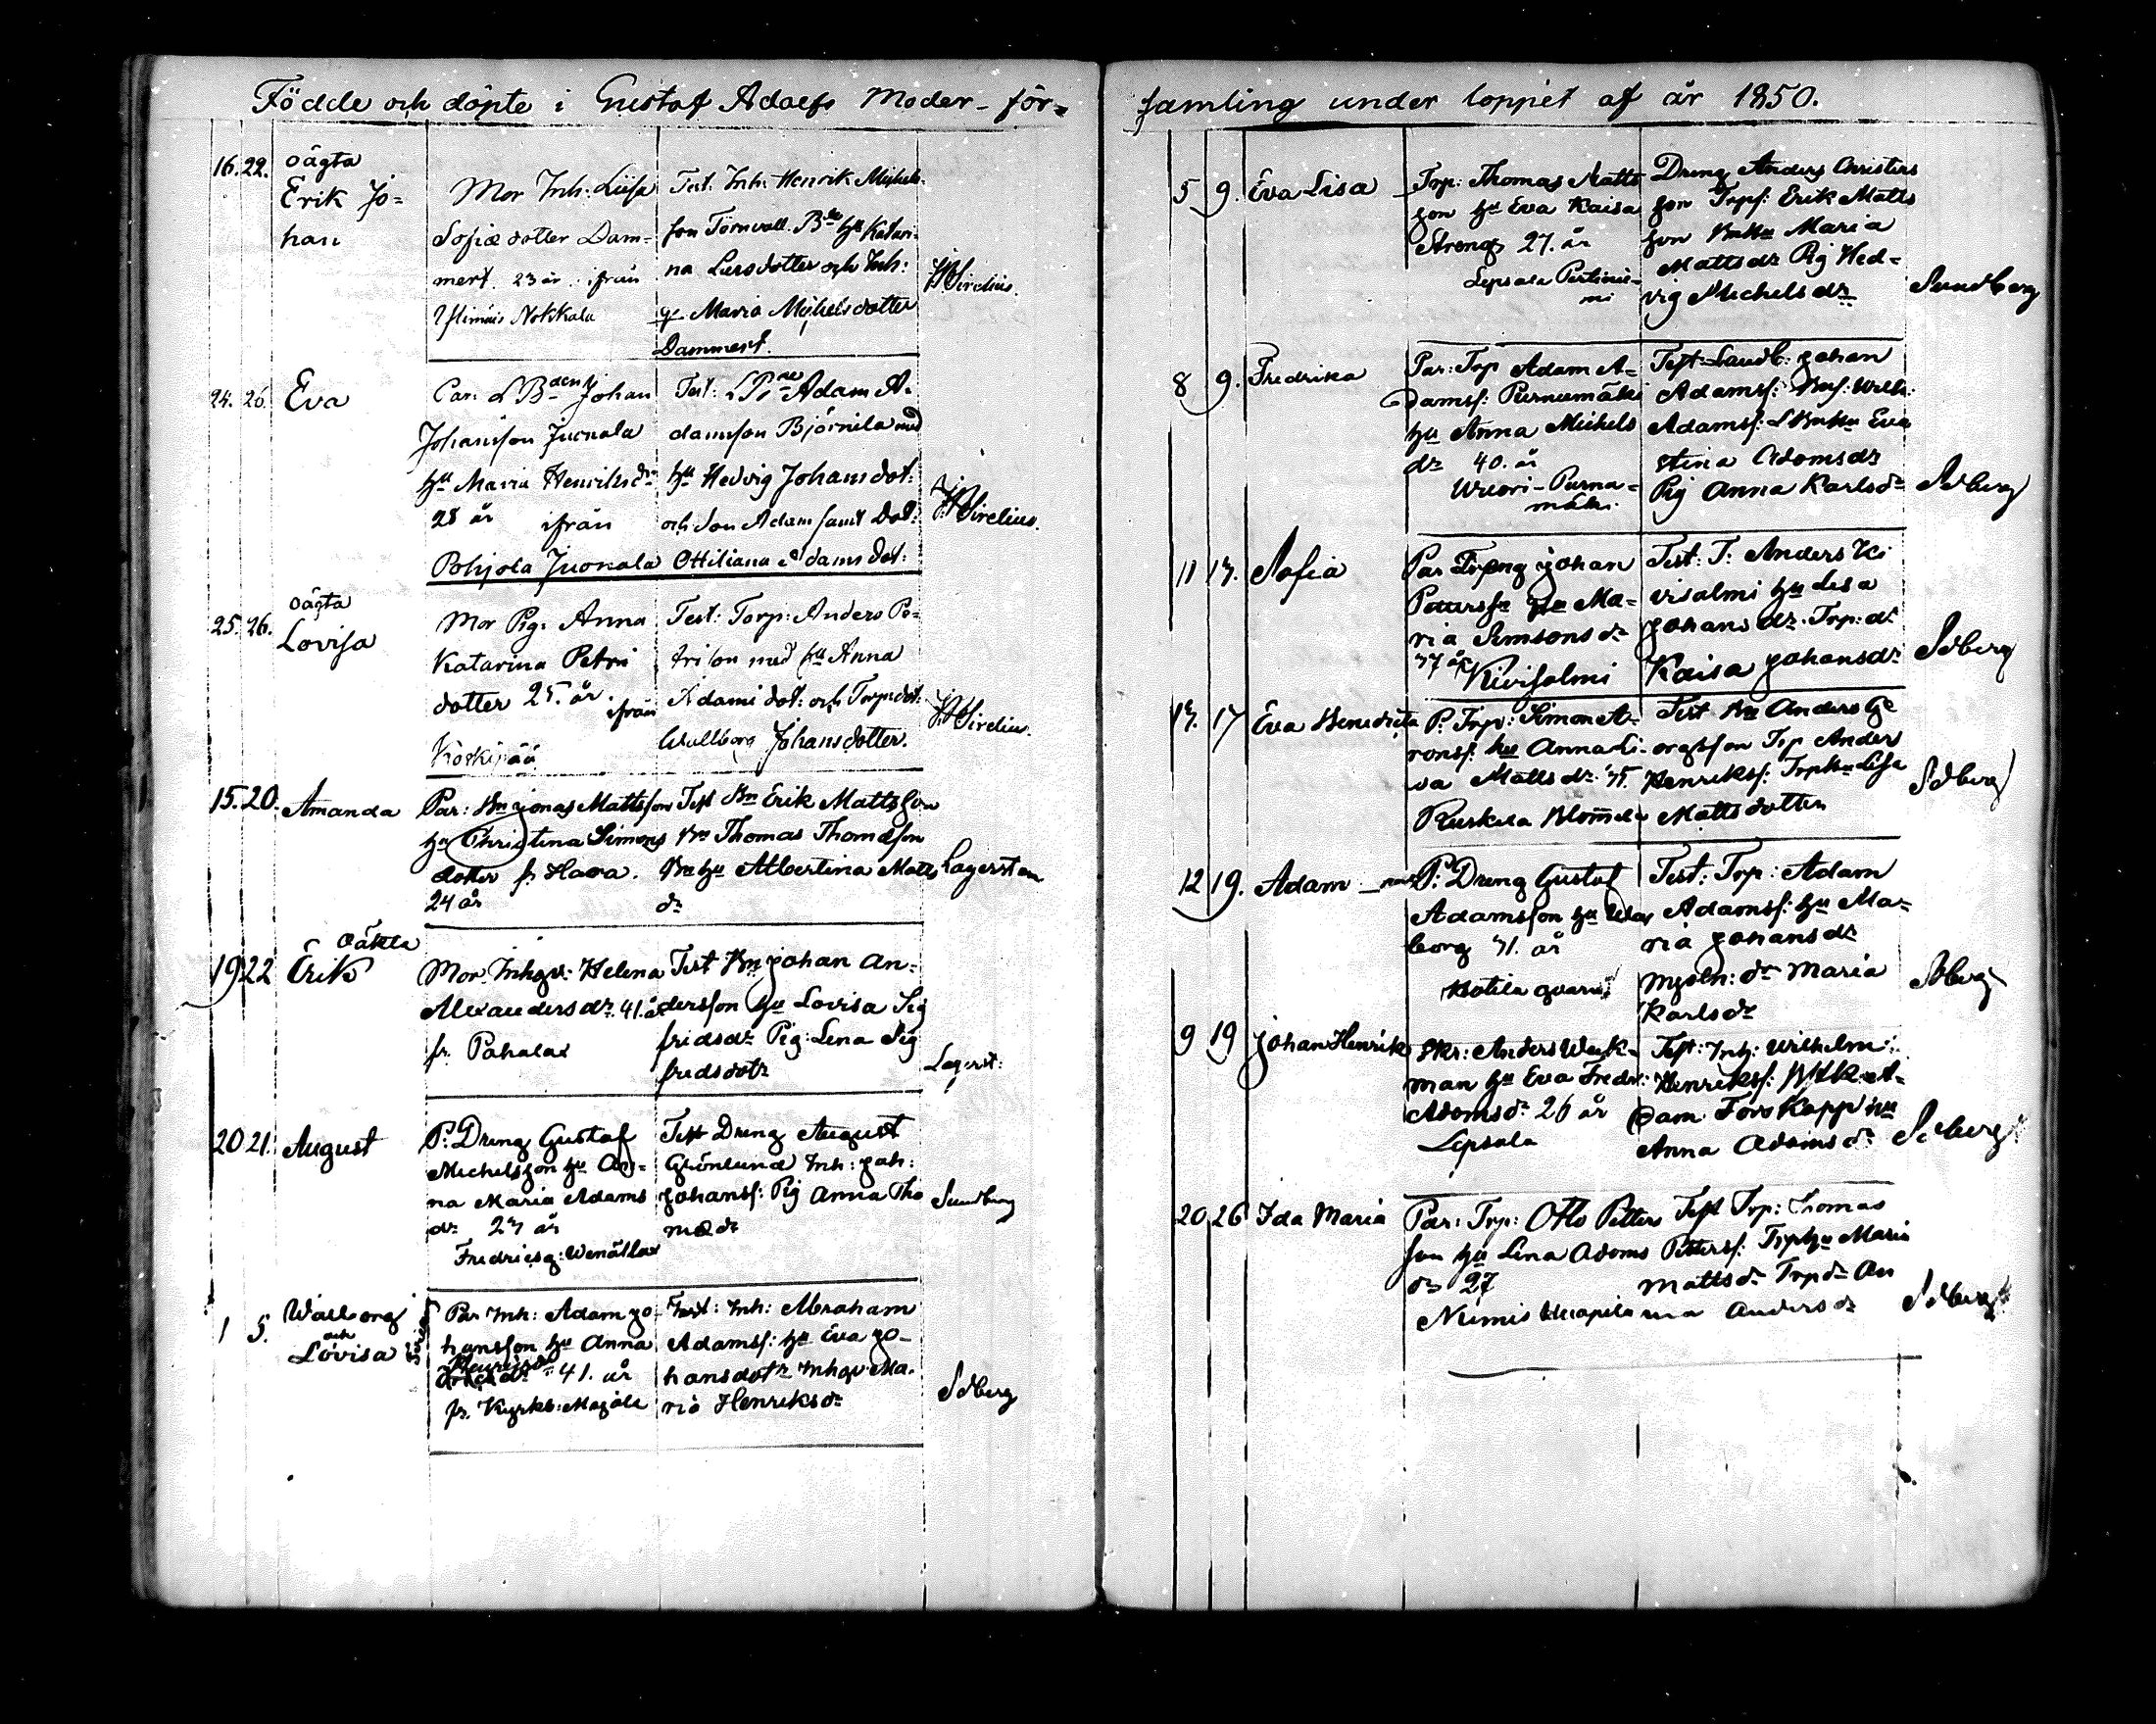 Födde och döpte i Gustaf Adolfs Moder-för=
16. 22. oägta
Erik Jo=
han
Mor Inh: Lisa
Sofiæ dotter Dam=
mert. 23 år ifrån
Nokkala
Test: Inh. Henrik Michels-
son Törnvall. Bde hu Katari-
na Larsdotter och Inh:
qv. Maria Michelsdotter
Dammert.
Sirelius.
24. 26. Eva
Par: LBden Johan
Johansson Juonala
hu Maria Henriksdr
28 år ifrån
Pohjola Juonala
Test: LBde Adam A-
damsson Björnila med
hu Hedvig Johansdot:
och Son Adam samt dot:
Ottiliana Adamsdot:
Sirelius.
25. 26. oägta
Lovisa
Mor Pig. Anna
Katarina Petri
dotter 25. år ifrån
Koskipää
Test: Torp: Anders Pe-
trison med hu Anna
Adami dot: och Torpdot:
Wallborg Johansdotter.
Sirelius.
15. 20. Amanda
Par: Bn Jonas Mattsson
hu Christina Simons
dotter fr Haara.
24 år
Test Bn Erik Mattsson
Bn Thomas Thomasson
Bn hu Albertina Matts
dr
Lagerstam
19 22 Oäkta
Erik
Mor Inhqv: Helena
Alexandersdr. 41. år
fr. Pahalax
Test Bn Johan An-
dersson hu Lovisa Sig
fridsdr Pig: Lena Sig
fredsdotr
Lagerst:
20 21. August
P: Dreng Gustaf
Michelsson hu An-
na Maria Adams
dr 27 år
Fredriesg: Wenällax
Test Dreng August
Grönlund Inh: Joh:
Johanss: Pig Anna Tho
mædr
Sundberg
1 5. Walborg
och
Lovisa
Par Inh: Adam Jo-
hansson hu Anna
41. år
fr. Kyrkb: Majala
Test: Inh: Abraham
Adamss: hu Eva Jo-
hansdotr Inhqv. Ma-
ria Henriksdr
Sdberg
samling under loppet af år 1850.
5 9. Eva Lisa
Trp: Thomas Matts
son hu Eva Kaisa
Streng 27. år
Lepsala Pertinie-
mi
Dreng Anders Christers
son Trps: Erik Matts
son Bnhu Maria
Mattsdr Pig Hed-
vig Michelsdr
Sundberg
8 9. Fredrika
Par: Trp Adam A-
damss: Purnumäki
hu Anna Michels
dr 40. år
Wuori-Purna-
mäki
Test Landb: Johan
Adamss: Bns: Wilh:
Adamss: LBnhu Eva
Stina Adamsdr
Pig Anna Karlsdr
Sdberg
11 17. Sofia
Par Trpng Johan
Petterss hu Ma-
ria Simsonsdr
37 år
Kivisalmi
Test: T: Anders Ki
visalmi hu Lisa
Johansdr. Trp: dr
Kaisa Johansdr
Sdberg
17. 17 Eva Benedicta
P. Trp: Simon A-
ronss: hu Anna Li-
sa Mattsdr. 35.
Ruskila Blomila
Test Bn Anders Ge
orgsson Trp Ander
Henrikss: Trphu Lisa
Mattsdotter
Sdberg
12 19. Adam
P: Dreng Gustaf
Adamsson hu Wal
borg 31. år
Kotila qvarn
Test: Trp: Adam
Adamss: hu Ma-
ria Johansdr
Mjoln: dr Maria
Karlsdr
Sdberg
9 19 Johan Henrik
Skr: Anders Week-
man hu Eva Fredr:
Adamsdr 26 år
Lepsala
Test: Inh: Wilhelm
Henrikss: A-
dam Forskapp hu
Anna Adamsdr
Sdberg
20 26 Ida Maria
Par: Trp: Otto Petters
son hu Lina Adams
dr 27
Niemis
Test Trp: Thomas
Petterss: Trphu Maria
Mattsdr Trpdr An
na Andersdr
Sdberg